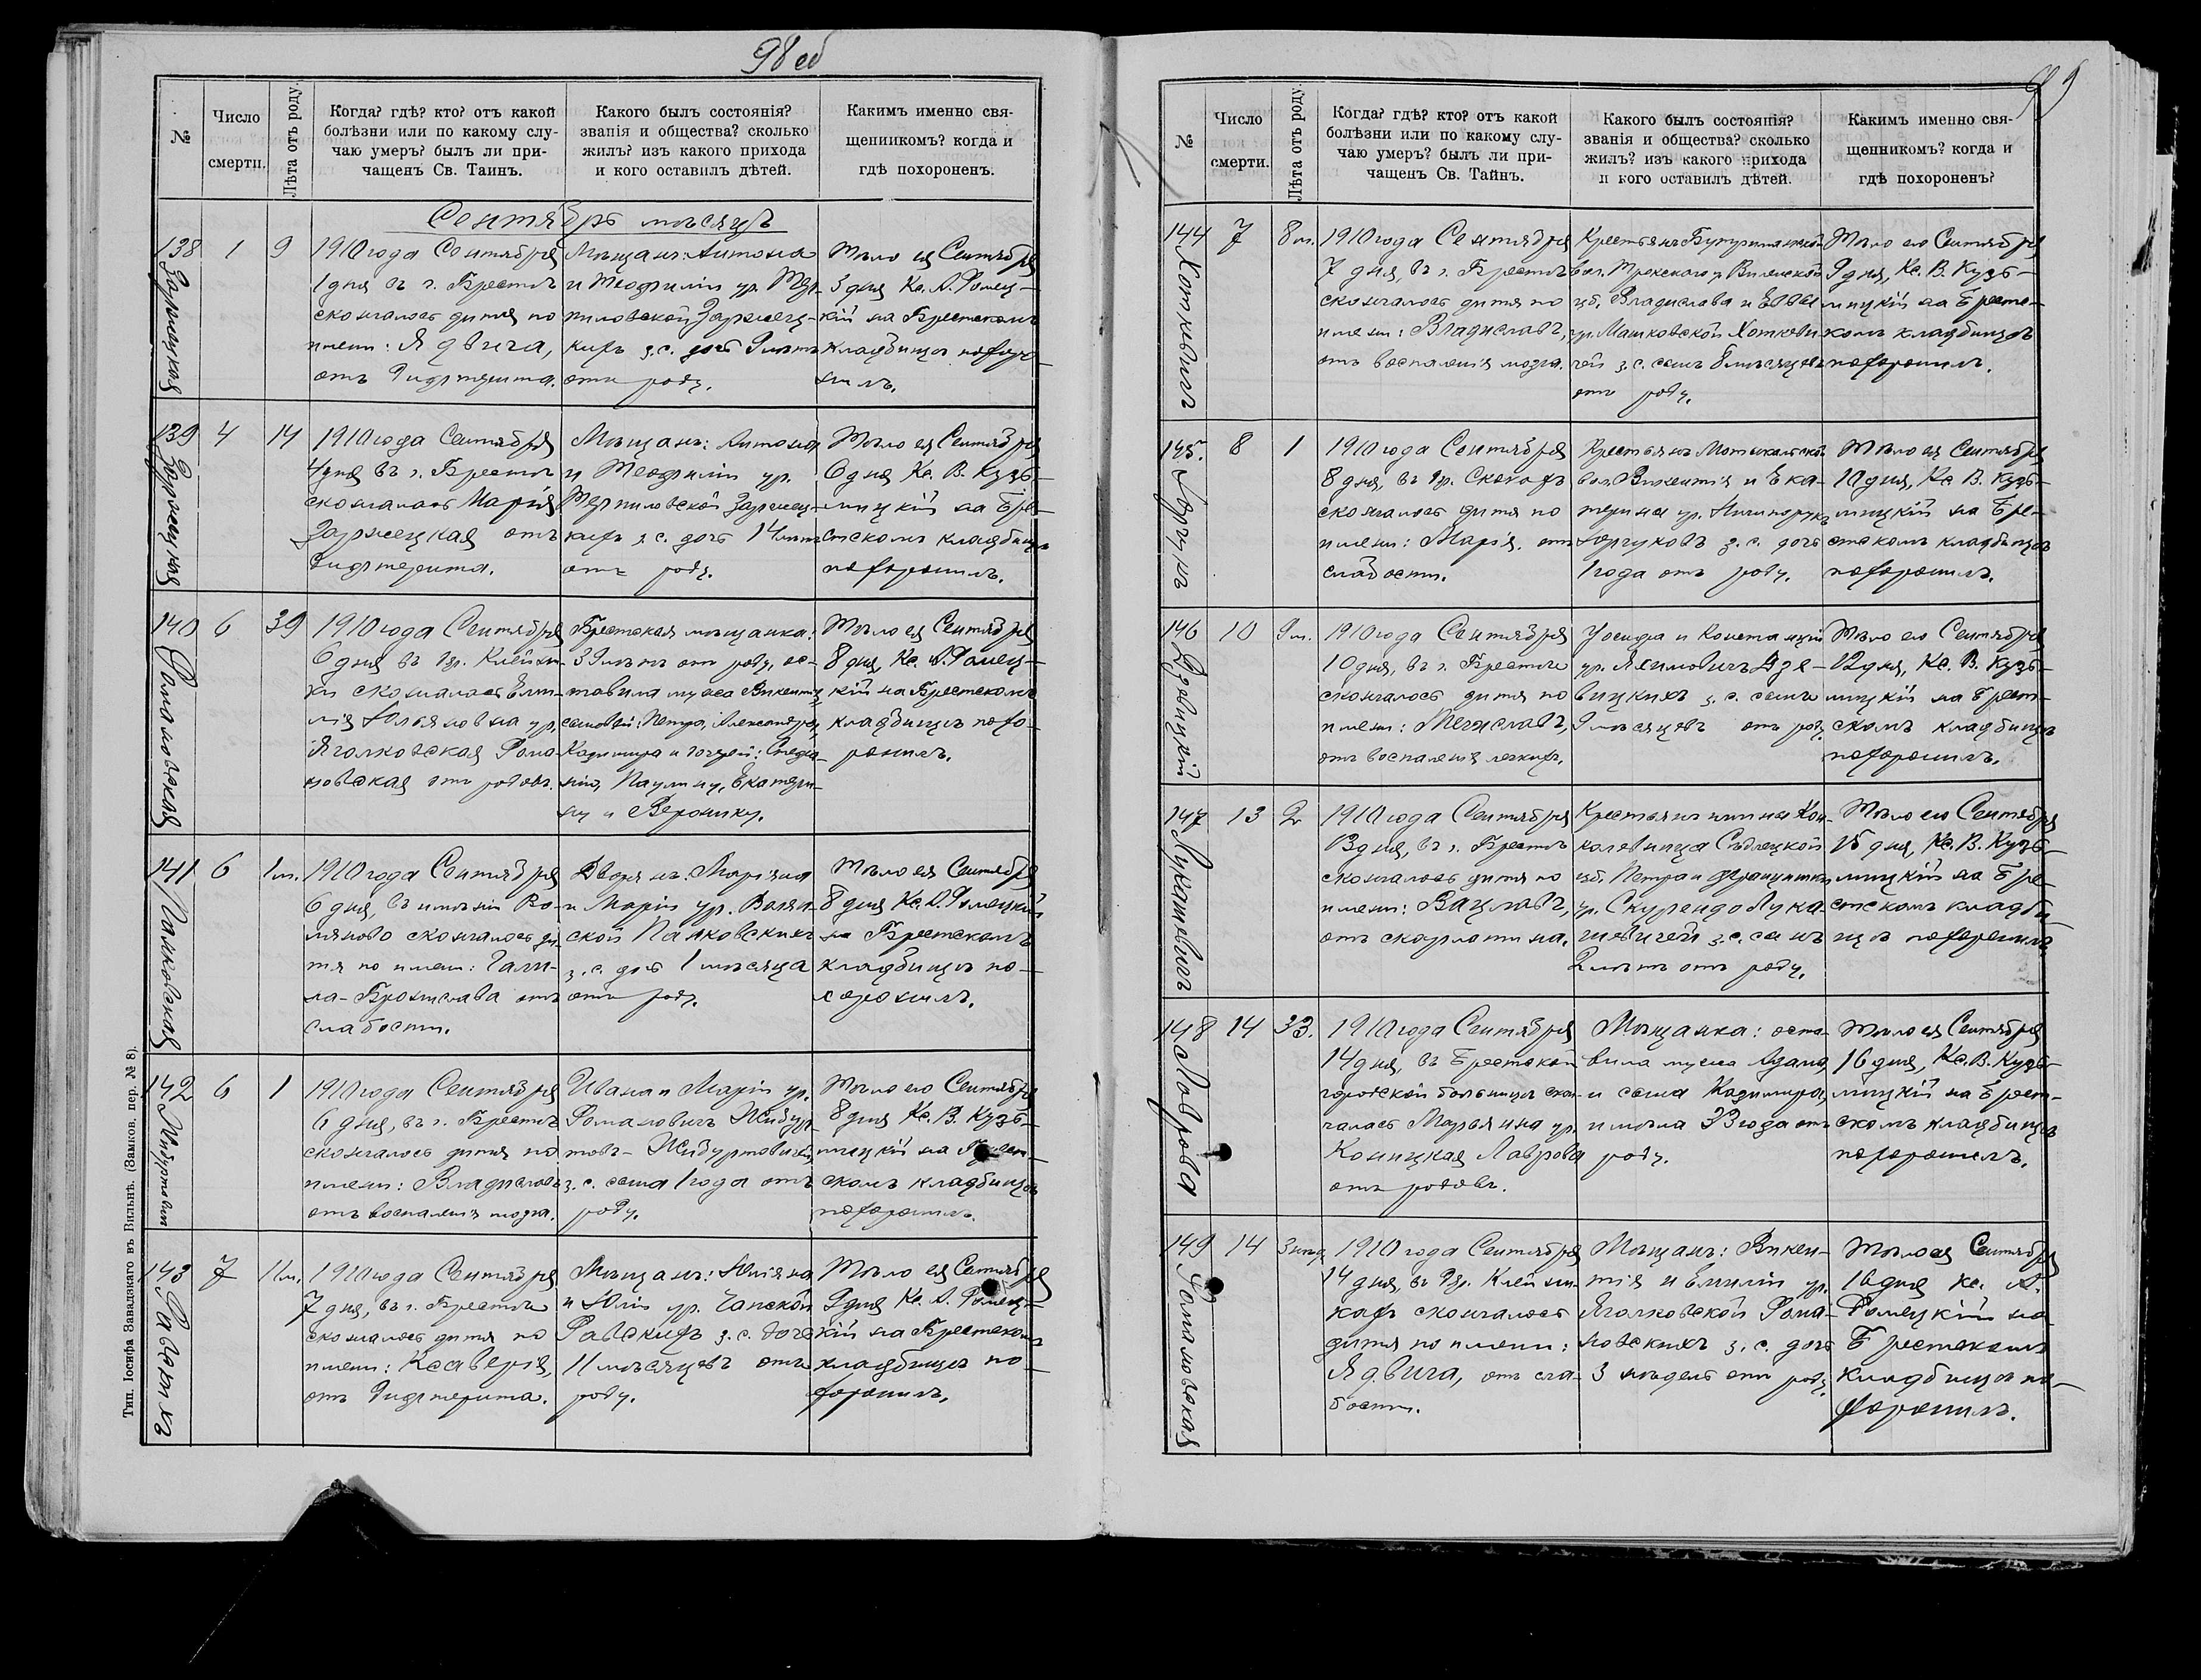 98 об
№
Число
смерти.
Лѣта отъ роду.
Когда? гдѣ? кто? отъ какой
болѣзни или по какому слу-
чаю умеръ? былъ ли при-
чащенъ Св. Таинъ.
Какого былъ состоянія?
званія и общества? сколько
жилъ? изъ какого прихода
и кого оставилъ дѣтей.
Какимъ именно свя-
щенникомъ? когда и
гдѣ похороненъ.
Сентябрь мѣсяцъ
138
Заржецкая
1
9
1910 года Сентября
1 дня въ г. Брестѣ
скончалось дитя по
имени: Ядвига,
отъ дифтерита.
Мѣщанъ: Антона
и Теофиліи ур. Тер-
пиловской Заржец-
кихъ з. с. дочь 9 лѣтъ
отъ роду.
Тѣло ея Сентября
3 дня Кс. А. Ромец-
кій на Брестскомъ
кладбищѣ похоро-
нилъ.
139
Заржецкая
4
14
1910 года Сентября
4 дня въ г. Брестѣ
скончалась Марія
Заржецкая отъ
дифтерита.
Мѣщанъ: Антона
и Теофиліи ур.
Терпиловской Заржец-
кихъ з. с. дочь 14 лѣтъ
отъ роду.
Тѣло ея Сентября
6 дня Кс. В. Кузь-
мицкій на Бре-
стскомъ кладбищѣ
похоронилъ.
140
Романовская
6
39
1910 года Сентября
6 дня въ гр. Клейни-
ки скончалась Еми-
лія Юльяновна ур.
Яголковская Рома-
новская отъ родовъ.
Брестская мѣщанка:
39 лѣтъ отъ роду, ос-
тавила мужа Викентія
сыновей: Петра, Александра,
Казимира и дочерей: Стефа-
нію, Паулину, Екатери-
ну и Веронику.
Тѣло ея Сентября
8 дня, Кс. А. Ромец-
кій на Брестскомъ
кладбищѣ похо-
ронилъ.
141
Панковская
6
1 м.
1910 года Сентября
6 дня, въ имѣніи Во-
ляново скончалось ди-
тя по имени: Гали-
на-Бронислава отъ
слабости.
Дворянъ: Маріана
и Маріи ур. Волян-
ской Панковскихъ
з. с. дочь 1 мѣсяца
отъ роду.
Тѣло ея Сентября
8 дня Кс. А. Ромецкій
на Брестскомъ
кладбищѣ по-
хоронилъ.
142
6
1
1910 года Сентября
6 дня, въ г. Брестѣ
скончалось дитя по
имени: Владиславъ
отъ воспаленія мозга.
Ивана и Маріи ур.
Романовичъ
з. с. сына 1 года отъ
роду.
Тѣло его Сентября
8 дня Кс. В. Кузь-
мицкій на Брест-
скомъ кладбищѣ
похоронилъ.
143
7
11 м.
1910 года Сентября
7 дня, въ г. Брестѣ
скончалось дитя по
имени: Ксаверія,
отъ дифтерита.
Мѣщанъ: Юліана
и Юліи ур. Чапской
Равскихъ з. с. дочь
11 мѣсяцевъ отъ
роду.
Тѣло ея Сентября
9 дня Кс. А. Ромец-
кій на Брестскомъ
кладбищѣ по-
хоронилъ.
Тип. Іосифа Завадзкаго въ Вильнѣ. (Замков. пер. № 8).
99
№
Число
смерти.
Лѣта отъ роду.
Когда? гдѣ? кто? отъ какой
болѣзни или по какому слу-
чаю умеръ? былъ ли при-
чащенъ Св. Тайнъ.
Какого былъ состоянія?
званія и общества? сколько
жилъ? изъ какого прихода
и кого оставилъ дѣтей.
Какимъ именно свя-
щенникомъ? когда и
гдѣ похороненъ?
144
Хоткевичъ
7
8 м.
1910 года Сентября
7 дня, въ г. Брестѣ
скончалось дитя по
имени: Владиславъ,
отъ воспаленія мозга.
Крестьянъ
вол. Трокскаго у. Виленской
губ. Владислава и Еввы
ур. Машковской Хоткеви-
чей з. с. сынъ 8 мѣсяцевъ
отъ роду.
Тѣло его Сентября
9 дня, Кс. В. Кузь-
мицкій на Брест-
комъ кладбищѣ
похоронилъ.
145.
Юргукъ
8
1
1910 года Сентября
8 дня, въ гр.
скончалось дитя по
имени: Марія, отъ
слабости.
Крестьянъ Мотыкальской
вол. Викентія и Ека-
терины ур. Ничипорукъ
Юргуковъ з. с. дочь
1 года отъ роду.
Тѣло ея Сентября
10 дня, Кс. В. Кузь-
мицкій на Бре-
стскомъ кладбищѣ
похоронилъ.
146
Дзевицкій
10
9 м.
1910 года Сентября
10 дня, въ г. Брестѣ
скончалось дитя по
имени: Мечиславъ,
отъ воспаленія легкихъ.
Іосифа и Констанціи
ур. Якимовичъ Дзе-
вицкихъ з. с. сынъ
9 мѣсяцевъ отъ роду.
Тѣло его Сентября
12 дня, Кс. В. Кузь-
мицкій на Брест-
скомъ кладбищѣ
похоронилъ.
147
Лукашевичъ
13
2
1910 года Сентября
13 дня, въ г. Брестѣ
скончалось дитя по
имени: Вацлавъ,
отъ скарлатины.
Крестьянъ гмины Кон-
колевница Сѣдлецкой
губ. Петра и Францишки
ур. Скурендо Лука-
шевичей з. с. сынъ
2 лѣтъ отъ роду.
Тѣло его Сентября
15 дня, Кс. В. Кузь-
мицкій на Бре-
стскомъ кладби-
щѣ похоронилъ.
148
Лаврова
14
33.
1910 года Сентября
14 дня, въ Брестской
городской больницѣ скон-
чалась Марьянна ур.
Коницкая Лаврова
отъ родовъ.
Мѣщанка: оста-
вила мужа Адама,
и сына Казимира,
имѣла 33 года отъ
роду.
Тѣло ея Сентября
16 дня, Кс. В. Кузь-
мицкій на Брест-
скомъ кладбищѣ
похоронилъ.
149
Романовская
14
3 нед.
1910 года Сентября
14 дня, въ гр. Клейни-
кахъ скончалось
дитя по имени:
Ядвига, отъ сла-
бости.
Мѣщанъ: Викен-
тія и Емиліи ур.
Яголковской Рома-
новскихъ з. с. дочь
3 недѣль отъ роду.
Тѣло ея Сентября
16 дня Кс. А.
Ромецкій на
Брестскомъ
кладбищѣ по-
хоронилъ.